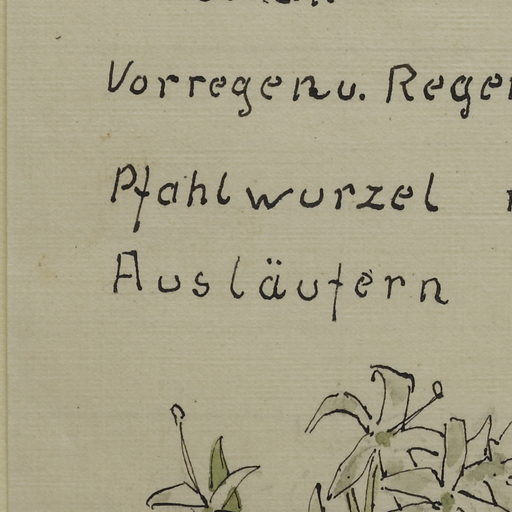 Vorregen u. Regen
Pfahlwurzel
Ausläufern